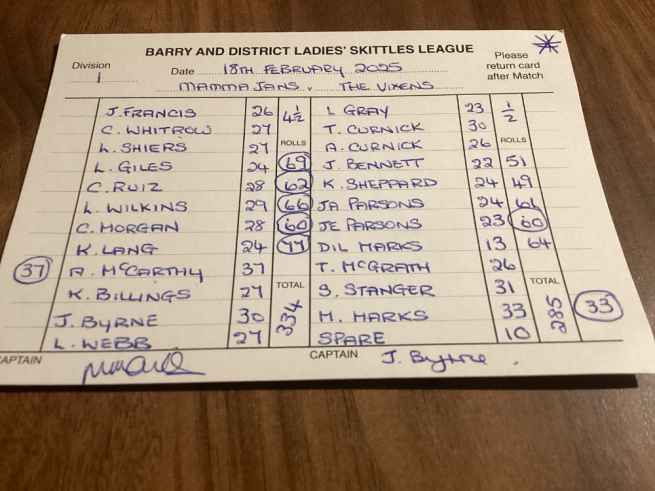 BARRY AND DISTRICT LADIES' SKITTLES LEAGUE
Please return card after Match
Division 1
Date 18TH FEBRUARY 2025
MAMMA JANS v THE VIXENS
J. FRANCIS 26 4½ L GRAY 23 ½
C. WHITROW 27 T. CURNICK 30
L. SHIERS 27 ROLLS A. CURNICK 26 ROLLS
L. GILES 24 69 J. BENNETT 22 51
C. RUIZ 28 62 K. SHEPPARD 24 49
L. WILKINS 29 66 JA PARSONS 24 61
C. MORGAN 28 60 JE PARSONS 23 60
K. LANG 24 77 DIL MARKS 13 64
37 A. McCARTHY 37 T. McGRATH 26
K. BILLINGS 27 TOTAL S. STANGER 31 TOTAL
J. BYRNE 30 334 M. MARKS 33 285 33
L. WEBB 27 SPARE 10
CAPTAIN CAPTAIN J. Byrne